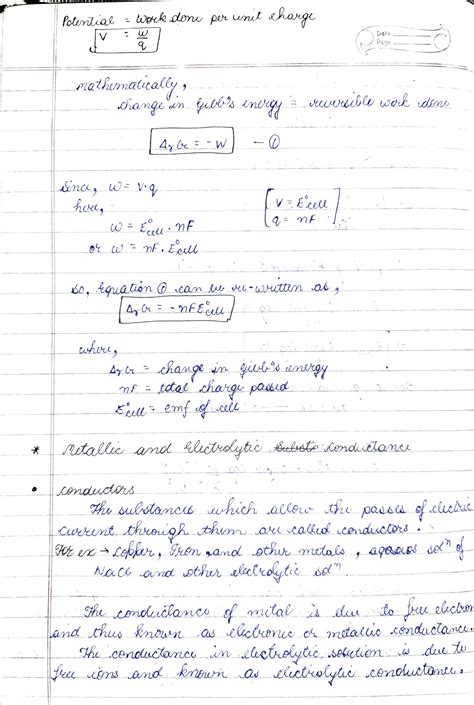 Potential = Work done per unit charge
V = w/q
Date
Page
mathematically,
change in gibb's energy = reversible work done
ΔrG = -W — ①
Since, w = V·q
here,
[V = E°cell
q = nF]
w = E°cell · nF
or w = nF · E°cell
so, Equation ① can be re-written as,
ΔrG = -nFE°cell
where,
ΔrG = change in gibb's energy
nF = total charge passed
E°cell = emf of cell
* Metallic and Electrolytic conductance
• conductors
The substances which allow the passes of electric
current through them are called conductors.
For ex → Copper, Iron and other metals, aqueous solⁿ of
NaCl and other electrolytic solⁿ.
The conductance of metal is due to free electron
and thus known as electronic or metallic conductance.
The conductance in electrolytic solution is due to
free ions and known as electrolytic conductance.